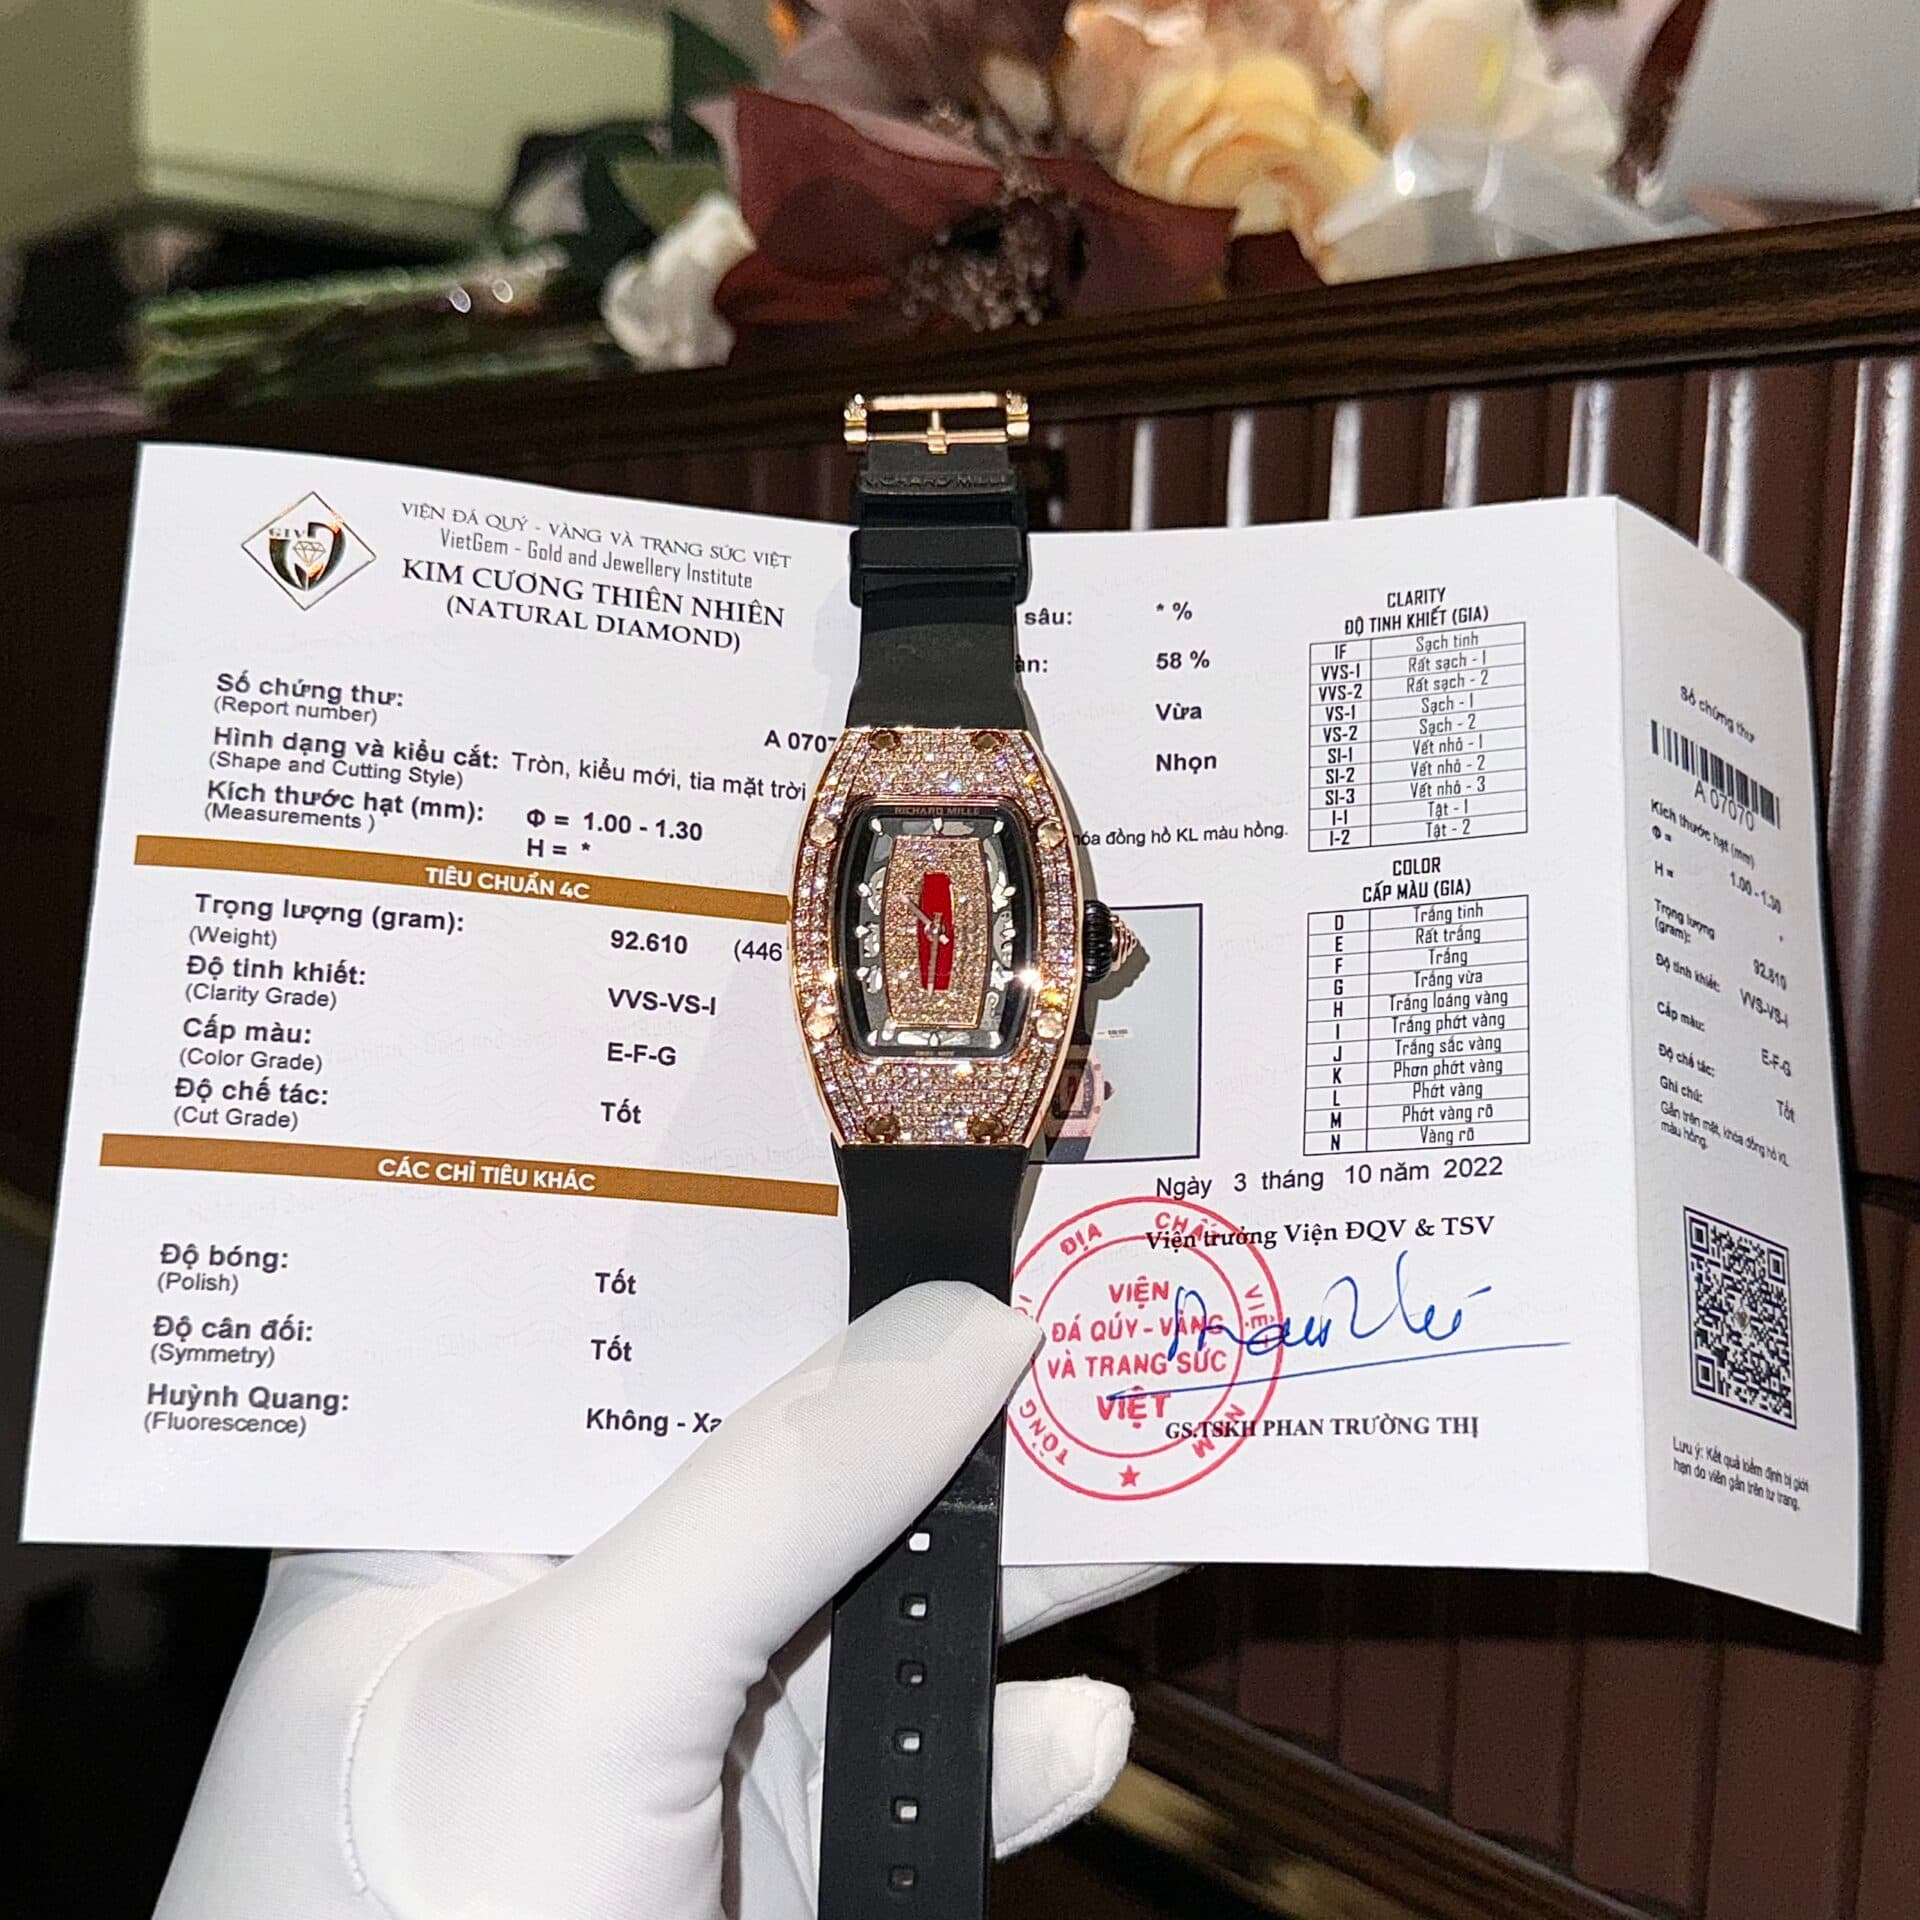 GIV
VIỆN ĐÁ QUÝ - VÀNG VÀ TRANG SỨC VIỆT
VietGem - Gold and Jewellery Institute
KIM CƯƠNG THIÊN NHIÊN
(NATURAL DIAMOND)
Số chứng thư:
(Report number)
A 0707
Hình dạng và kiểu cắt: Tròn, kiểu mới, tia mặt trời
(Shape and Cutting Style)
Kích thước hạt (mm): Φ = 1.00 - 1.30
(Measurements ) H = *
TIÊU CHUẨN 4C
Trọng lượng (gram): 92.610 (446
(Weight)
Độ tinh khiết: VVS-VS-I
(Clarity Grade)
Cấp màu: E-F-G
(Color Grade)
Độ chế tác: Tốt
(Cut Grade)
CÁC CHỈ TIÊU KHÁC
Độ bóng: Tốt
(Polish)
Độ cân đối: Tốt
(Symmetry)
Huỳnh Quang: Không - Xa
(Fluorescence)
RICHARD MILLE
RICHARD MILLE
sâu: * %
àn: 58 %
Vừa
Nhọn
hóa đồng hồ KL màu hồng.
CLARITY
ĐỘ TINH KHIẾT (GIA)
IF Sạch tinh
VVS-1 Rất sạch - 1
VVS-2 Rất sạch - 2
VS-1 Sạch - 1
VS-2 Sạch - 2
SI-1 Vết nhỏ - 1
SI-2 Vết nhỏ - 2
SI-3 Vết nhỏ - 3
I-1 Tật - 1
I-2 Tật - 2
COLOR
CẤP MÀU (GIA)
D Trắng tinh
E Rất trắng
F Trắng
G Trắng vừa
H Trắng loáng vàng
I Trắng phớt vàng
J Trắng sắc vàng
K Phơn phớt vàng
L Phớt vàng
M Phớt vàng rõ
N Vàng rõ
Ngày 3 tháng 10 năm 2022
Viện trưởng Viện ĐQV & TSV
TỔNG HỘI ĐỊA CHẤT VIỆT NAM
VIỆN
ĐÁ QÚY - VÀNG
VÀ TRANG SỨC
VIỆT
GS.TSKH PHAN TRƯỜNG THỊ
Số chứng thư
A 07070
Kích thước hạt (mm)
Φ = 1.00 - 1.30
H = *
Trọng lượng
(gram): 92.610
Độ tinh khiết: VVS-VS-I
Cấp màu: E-F-G
Độ chế tác: Tốt
Ghi chú:
Gắn trên mặt, khóa đồng hồ KL
màu hồng.
Lưu ý: Kết quả kiểm định bị giới
hạn do viên gắn trên tư trang.